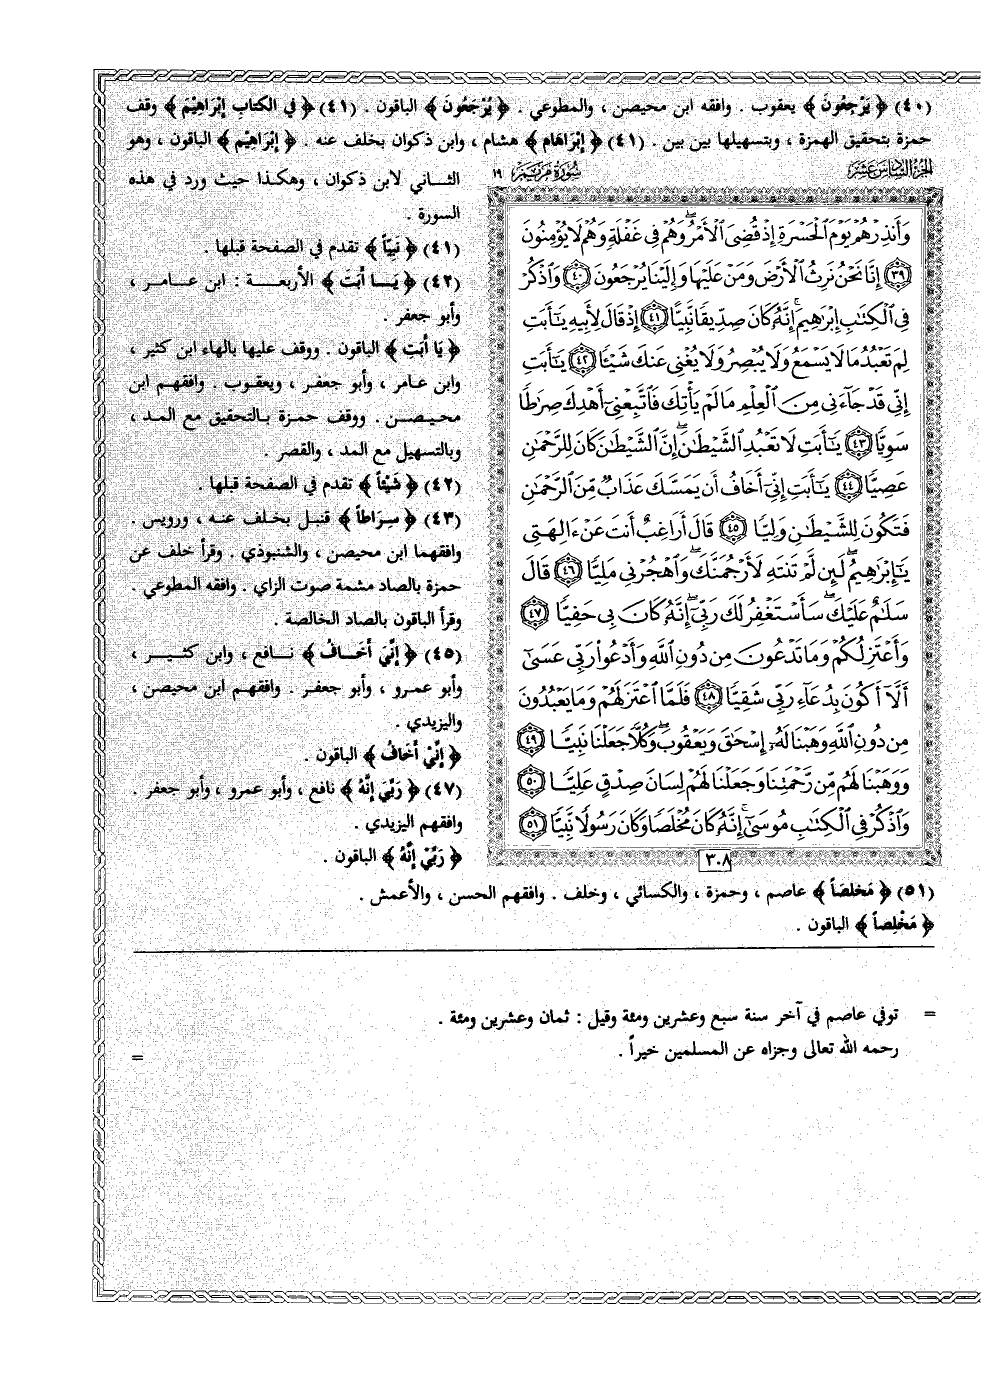 (٤٠) ﴿ يَرْجِعُونَ ﴾ يعقوب . وافقه ابن محيصن ، والمطوعي . ﴿ يُرْجَعُونَ ﴾ الباقون . (٤١) ﴿ في الكتابِ إبْرَاهِيْمَ ﴾ وقف
حمزة بتحقيق الهمزة ، وبتسهيلها بين بين . (٤١) ﴿ إبْرَاهَام ﴾ هشام ، وابن ذكوان بخلف عنه . ﴿ إبْرَاهِيْم ﴾ الباقون ، وهو
الجزء السادس عشر
سورة مريم ١٩
وَأَنذِرْهُمْ يَوْمَ ٱلْحَسْرَةِ إِذْ قُضِىَ ٱلْأَمْرُ وَهُمْ فِى غَفْلَةٍ وَهُمْ لَا يُؤْمِنُونَ
﴿٣٩﴾ إِنَّا نَحْنُ نَرِثُ ٱلْأَرْضَ وَمَنْ عَلَيْهَا وَإِلَيْنَا يُرْجَعُونَ ﴿٤٠﴾ وَٱذْكُرْ
فِى ٱلْكِتَٰبِ إِبْرَٰهِيمَ ۚ إِنَّهُۥ كَانَ صِدِّيقًا نَّبِيًّا ﴿٤١﴾ إِذْ قَالَ لِأَبِيهِ يَٰٓأَبَتِ
لِمَ تَعْبُدُ مَا لَا يَسْمَعُ وَلَا يُبْصِرُ وَلَا يُغْنِى عَنكَ شَيْـًٔا ﴿٤٢﴾ يَٰٓأَبَتِ
إِنِّى قَدْ جَآءَنِى مِنَ ٱلْعِلْمِ مَا لَمْ يَأْتِكَ فَٱتَّبِعْنِىٓ أَهْدِكَ صِرَٰطًا
سَوِيًّا ﴿٤٣﴾ يَٰٓأَبَتِ لَا تَعْبُدِ ٱلشَّيْطَٰنَ ۖ إِنَّ ٱلشَّيْطَٰنَ كَانَ لِلرَّحْمَٰنِ
عَصِيًّا ﴿٤٤﴾ يَٰٓأَبَتِ إِنِّىٓ أَخَافُ أَن يَمَسَّكَ عَذَابٌ مِّنَ ٱلرَّحْمَٰنِ
فَتَكُونَ لِلشَّيْطَٰنِ وَلِيًّا ﴿٤٥﴾ قَالَ أَرَاغِبٌ أَنتَ عَنْ ءَالِهَتِى
يَٰٓإِبْرَٰهِيمُ ۖ لَئِن لَّمْ تَنتَهِ لَأَرْجُمَنَّكَ ۖ وَٱهْجُرْنِى مَلِيًّا ﴿٤٦﴾ قَالَ
سَلَٰمٌ عَلَيْكَ ۖ سَأَسْتَغْفِرُ لَكَ رَبِّىٓ ۖ إِنَّهُۥ كَانَ بِى حَفِيًّا ﴿٤٧﴾
وَأَعْتَزِلُكُمْ وَمَا تَدْعُونَ مِن دُونِ ٱللَّهِ وَأَدْعُوا۟ رَبِّى عَسَىٰٓ
أَلَّآ أَكُونَ بِدُعَآءِ رَبِّى شَقِيًّا ﴿٤٨﴾ فَلَمَّا ٱعْتَزَلَهُمْ وَمَا يَعْبُدُونَ
مِن دُونِ ٱللَّهِ وَهَبْنَا لَهُۥٓ إِسْحَٰقَ وَيَعْقُوبَ ۖ وَكُلًّا جَعَلْنَا نَبِيًّا ﴿٤٩﴾
وَوَهَبْنَا لَهُم مِّن رَّحْمَتِنَا وَجَعَلْنَا لَهُمْ لِسَانَ صِدْقٍ عَلِيًّا ﴿٥٠﴾
وَٱذْكُرْ فِى ٱلْكِتَٰبِ مُوسَىٰٓ ۚ إِنَّهُۥ كَانَ مُخْلَصًا وَكَانَ رَسُولًا نَّبِيًّا ﴿٥١﴾
٣٠٨
الثاني لابن ذكوان ، وهكذا حيث ورد في هذه
السورة .
(٤١) ﴿ نَبِيّاً ﴾ تقدم في الصفحة قبلها .
(٤٢) ﴿ يَا أبَتَ ﴾ الأربعة : ابن عامر ،
وأبو جعفر .
﴿ يَا أبَتِ ﴾ الباقون . ووقف عليها بالهاء ابن كثير ،
وابن عامر ، وأبو جعفر ، ويعقوب . وافقهم ابن
محيصن . ووقف حمزة بالتحقيق مع المد ،
وبالتسهيل مع المد ، والقصر .
(٤٢) ﴿ شَيْئاً ﴾ تقدم في الصفحة قبلها .
(٤٣) ﴿ سِرَاطاً ﴾ قنبل بخلف عنه ، ورويس .
وافقهما ابن محيصن ، والشنبوذي . وقرأ خلف عن
حمزة بالصاد مشمة صوت الزاي . وافقه المطوعي .
وقرأ الباقون بالصاد الخالصة .
(٤٥) ﴿ إنِّيَ أَخَافُ ﴾ نافع ، وابن كثير ،
وأبو عمرو ، وأبو جعفر . وافقهم ابن محيصن ،
واليزيدي .
﴿ إنِّيْ أخَافُ ﴾ الباقون .
(٤٧) ﴿ رَبِّيَ إنَّهُ ﴾ نافع ، وأبو عمرو ، وأبو جعفر .
وافقهم اليزيدي .
﴿ رَبِّيْ إنَّهُ ﴾ الباقون .
(٥١) ﴿ مُخلَصَاً ﴾ عاصم ، وحمزة ، والكسائي ، وخلف . وافقهم الحسن ، والأعمش .
﴿ مُخْلِصاً ﴾ الباقون .
= توفي عاصم في آخر سنة سبع وعشرين ومئة وقيل : ثمان وعشرين ومئة .
رحمه الله تعالى وجزاه عن المسلمين خيراً . =